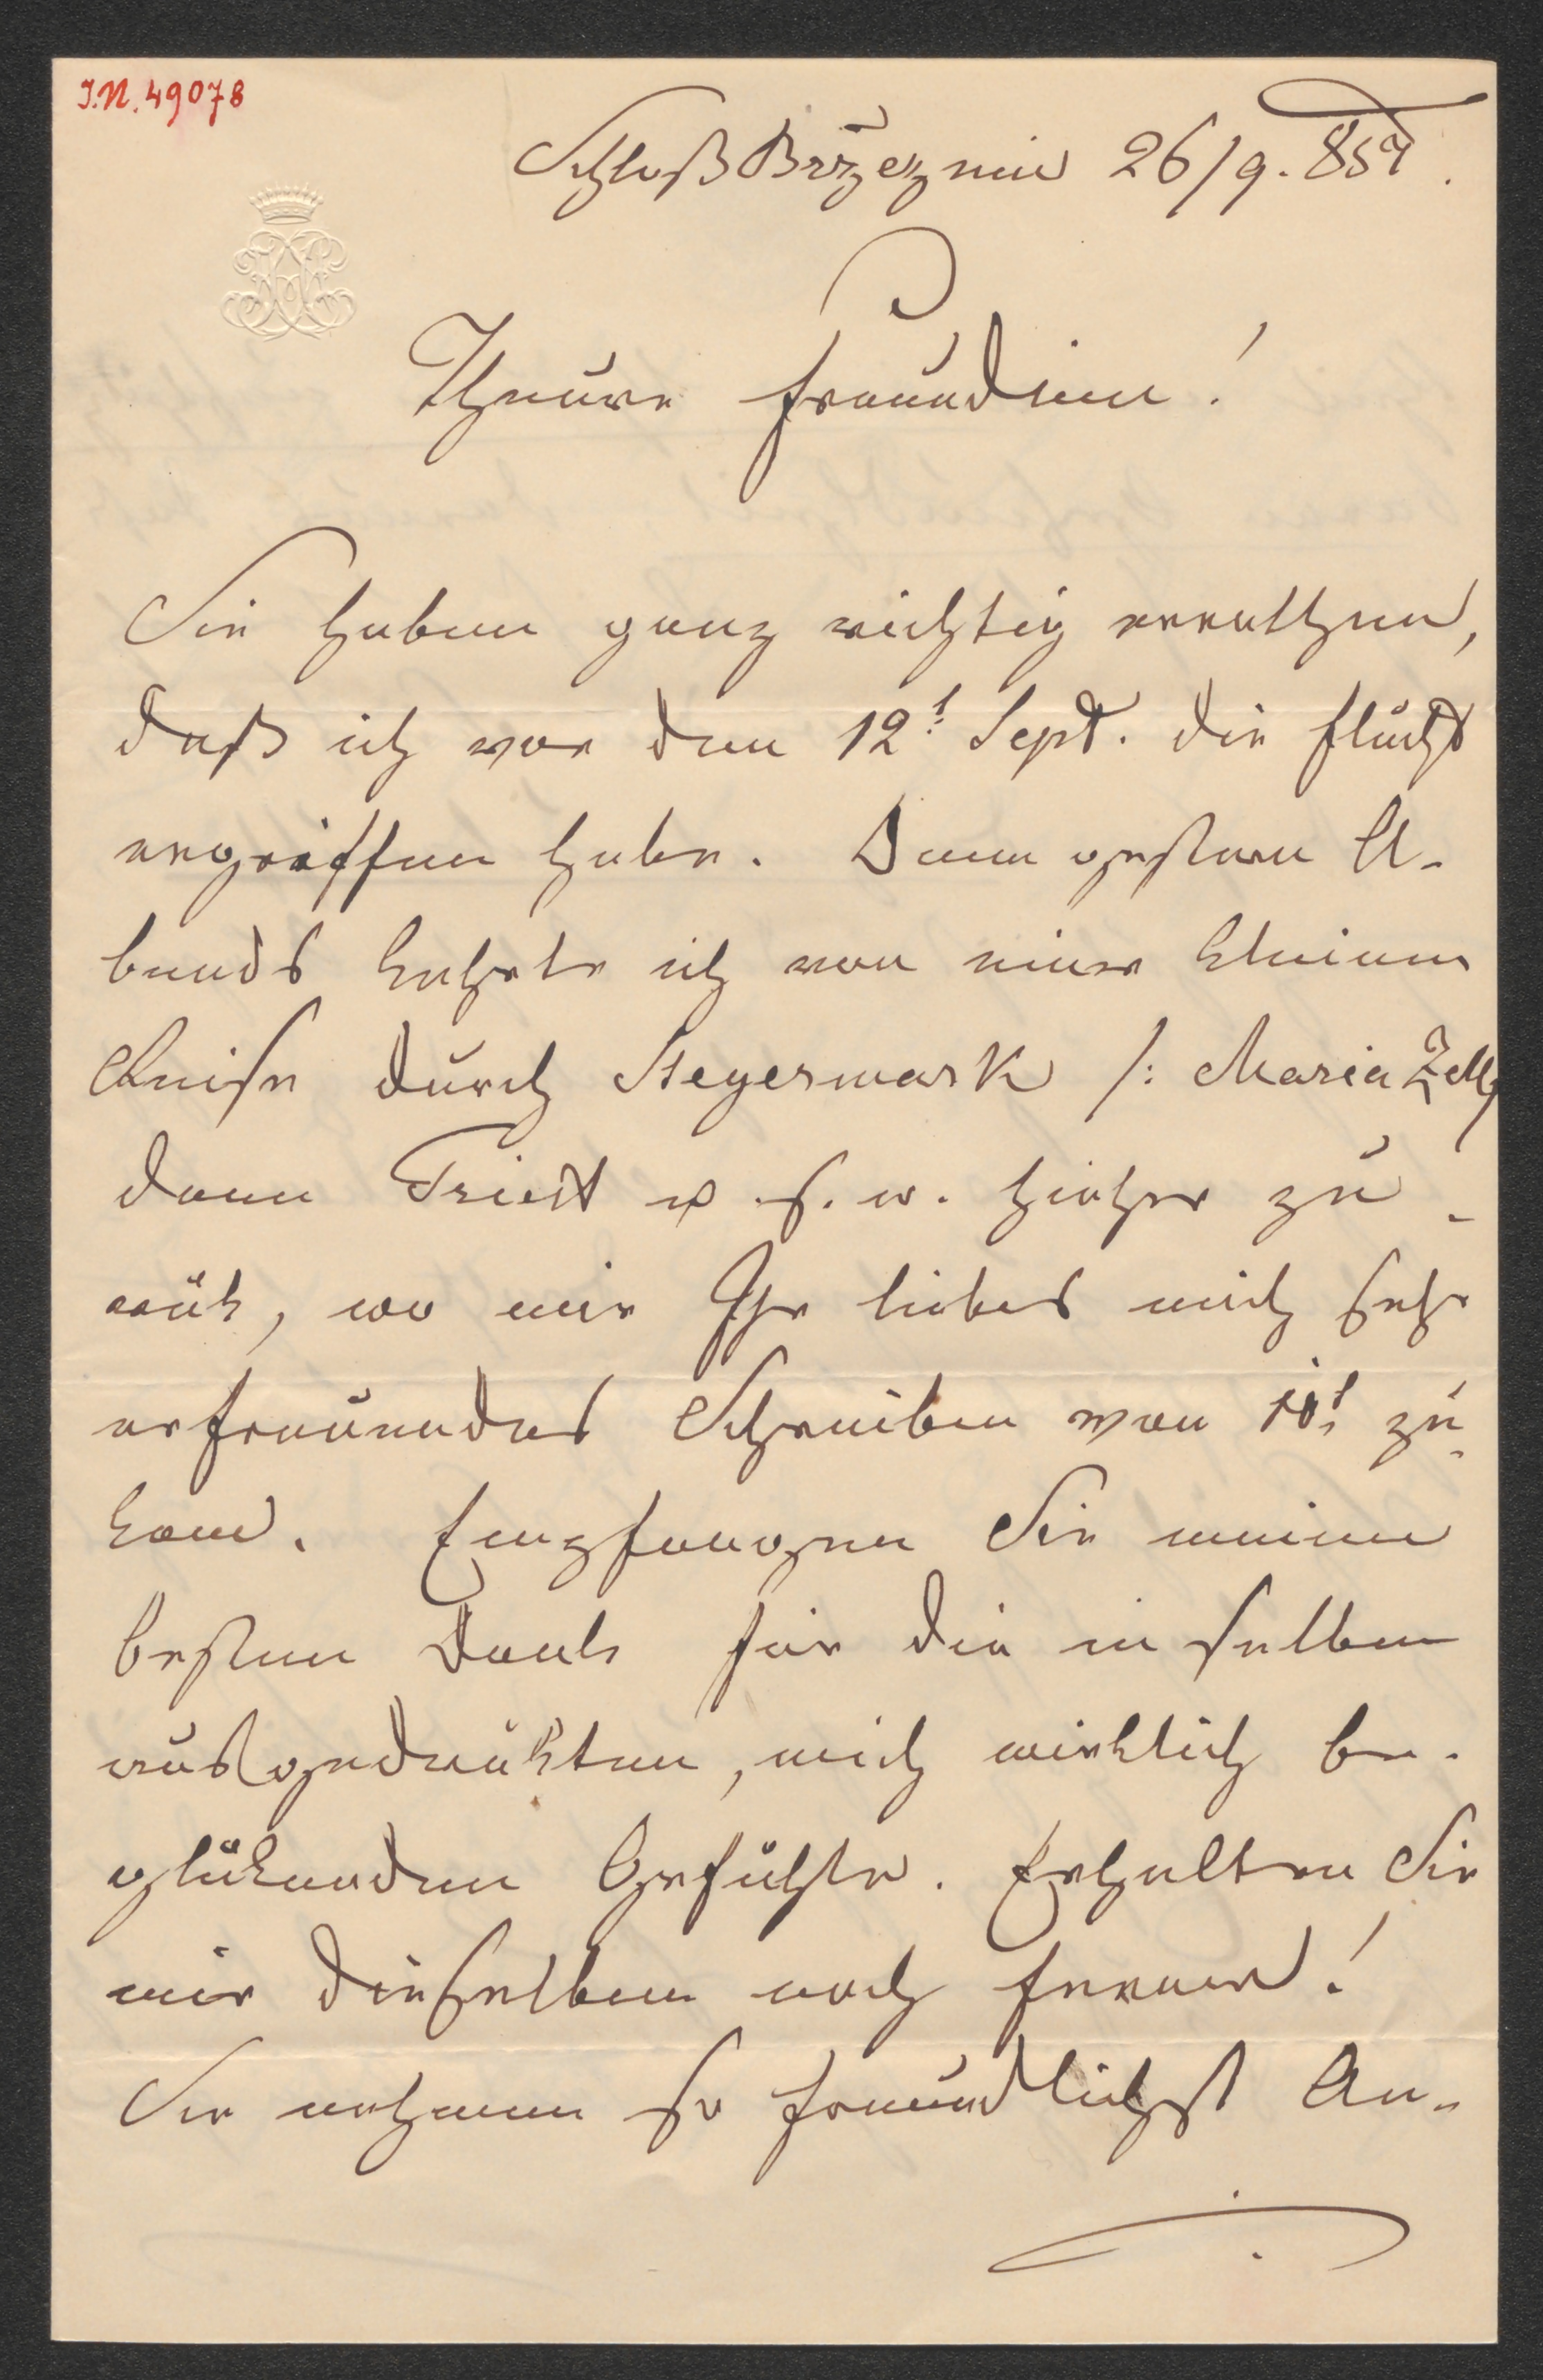 I.N. 49078
Schloß Břzeznic 26/9. 857.
Theure Freundinn!
Sie haben ganz richtig errathen,
daß ich vor dem 12t Sept. die Flucht
ergriffen habe. Denn gestern A-
bends kehrte ich von einer kleinen
Reise durch Steyermark /: Maria Zell,
dann Triest u. s. w. hieher zu-
rük, wo mir Ihr liebes mich sehr
erfreuendes Schreiben von 10t zu-
kam. Empfangen Sie meinen
besten Dank für die in selben
ausgedrükten, mich wirklich be-
glükenden Gefühle. Erhalten Sie
mir dieselben noch ferner!
Sie nehmen so freundlichst An-